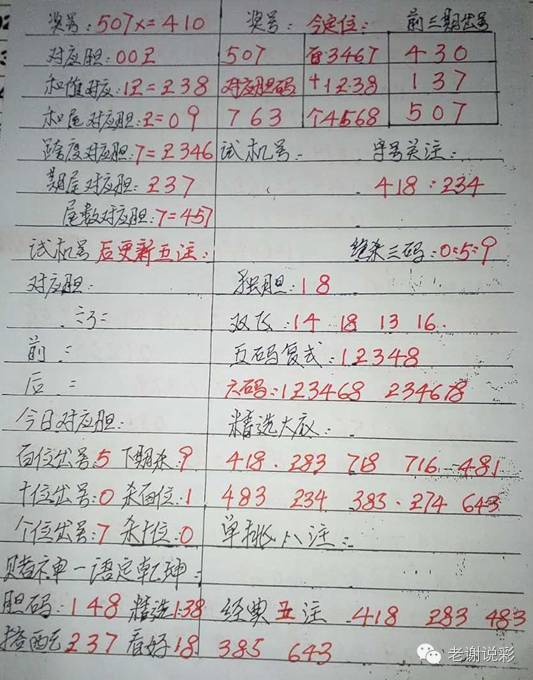 奖号:507x=410 奖号: 今定位: 前三期出号
对应胆:002 507 百3467 430
和值对应:12=238 对应胆码 十1238 137
和尾对应胆:2=09 763 个4568 507
跨度对应胆:7=2346 试机号: 字号关注:
期尾对应胆:237 418:234
尾数对应胆:7=457
试机号后更新五注: 绝杀三码:0:5:9
对应胆: 独胆:18
双飞:14 18 13 16.
前: 五码复式:12348
后: 六码:123468 234678
今日对应胆: 精选大底:
百位出号:5 下期杀:9 418. 283 718 716 481
十位出号:0 杀百位:1 483 234 383. 274 643
个位出号:7 杀十位:0 单挑八注:
赌神一语定乾坤:
胆码:148 精选138 经典五注 418 283 483
搭配237 看好18 385 643
老谢说彩